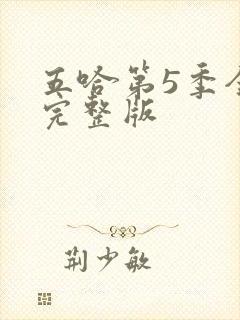 五哈第5季全
完整版
荆少敏